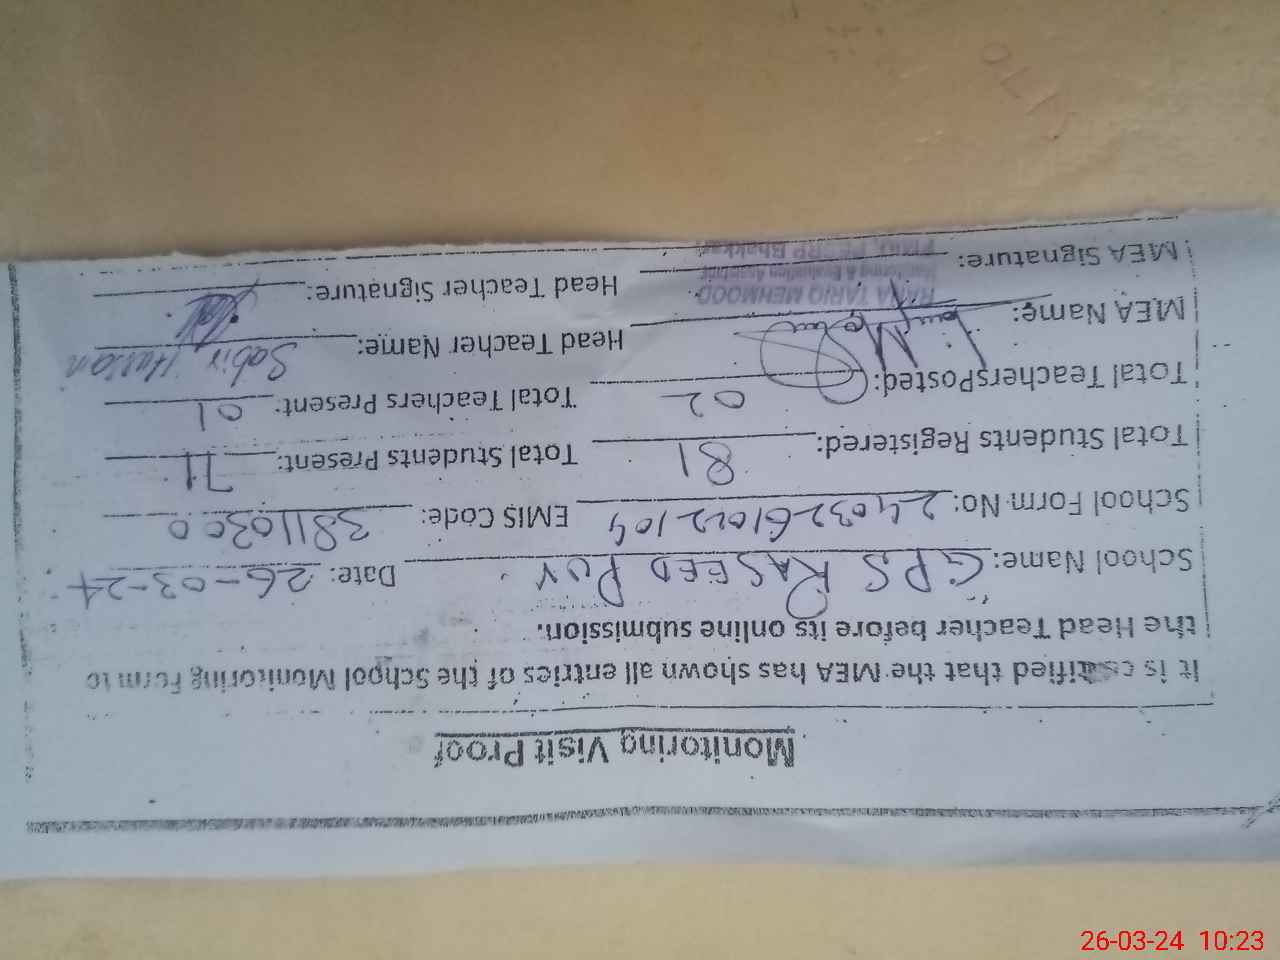 Monitoring Visit Proof
It is certified that the MEA has shown all entries of the School Monitoring Form to
the Head Teacher before its online submission.
School Name: GPS RASEED PUR Date: 26-03-24
School Form No: EMIS Code: 38110300
Total Students Registered: 81 Total Students Present: 71
Total Teachers Posted: 02 Total Teachers Present: 01
MEA Name: Head Teacher Name: Sabir Hassan
MEA Signature: Head Teacher Signature:
RANA TARIQ MEHMOOD
Monitoring & Evaluation Assistant
Bhakkar
26-03-24 10:23